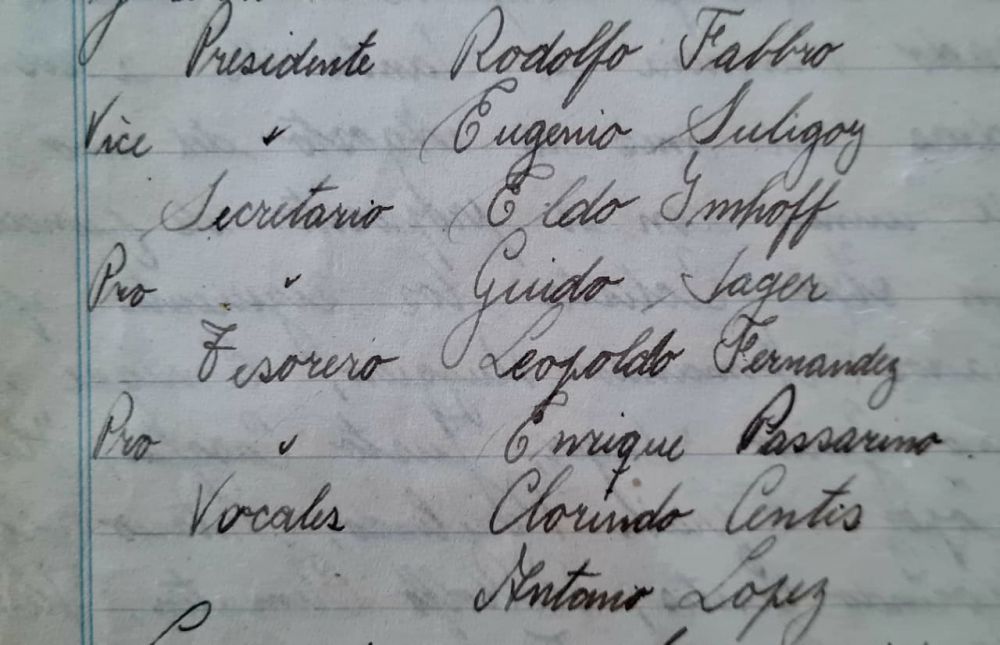 Presidente Rodolfo Fabbro
Vice " Eugenio Suligoy
Secretario Eldo Imhoff
Pro " Guido Sager
Tesorero Leopoldo Fernandez
Pro " Enrique Passarino
Vocales Clorindo Centis
Antonio Lopez